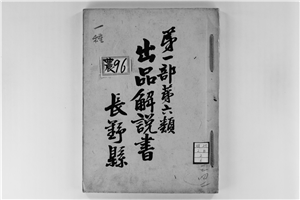 第一部第六類
出品解説書
長野縣
農96
一